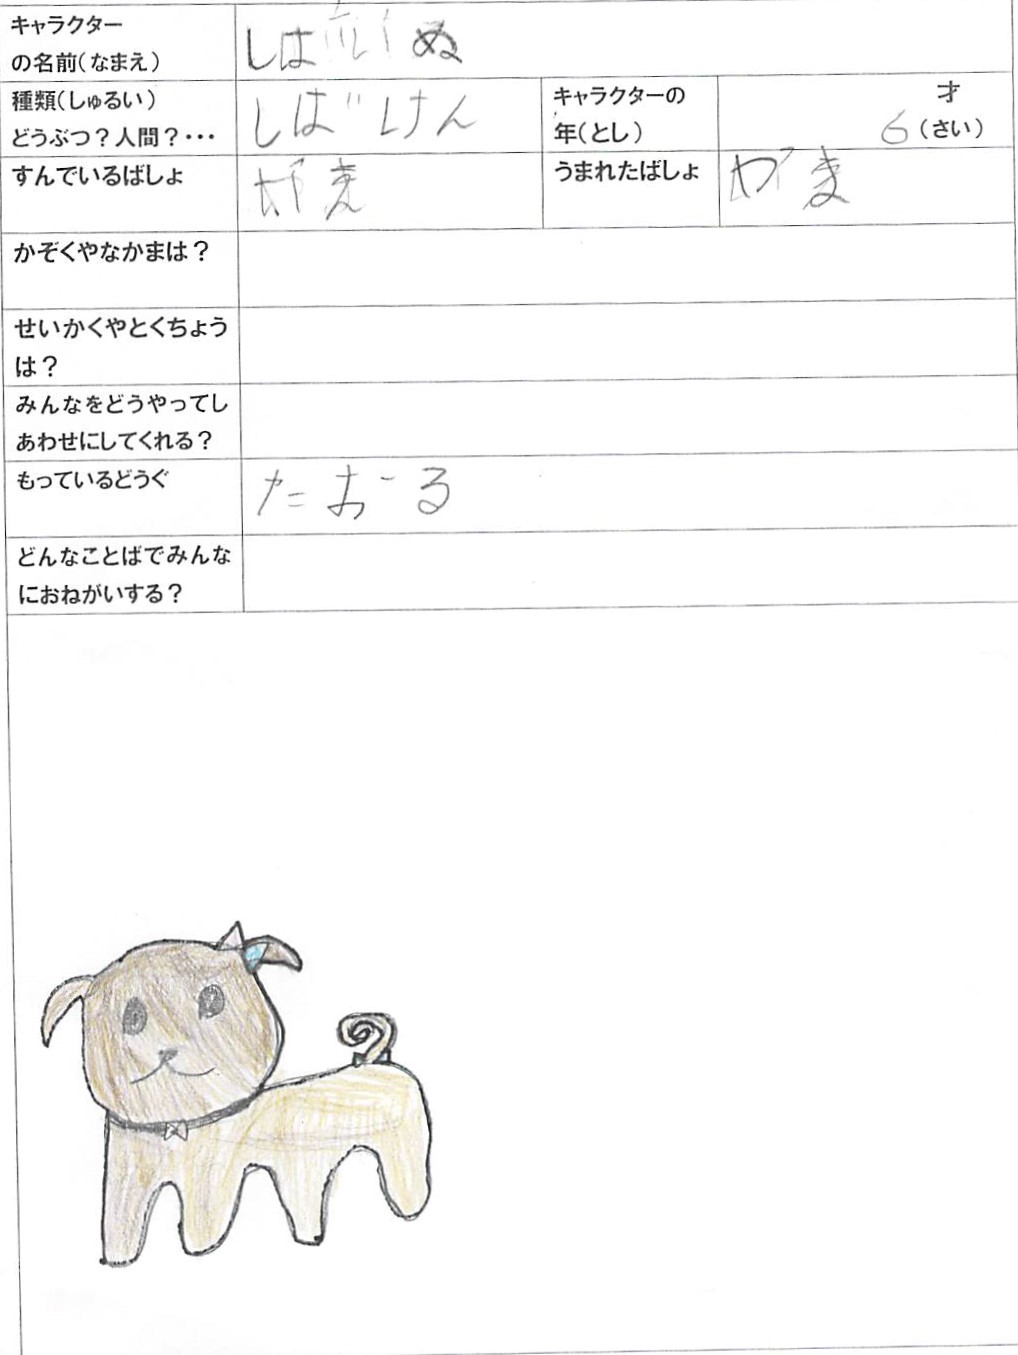 キャラクター
の名前(なまえ)
しばいぬ
種類(しゅるい)
どうぶつ?人間?・・・
しばけん
キャラクターの
年(とし)
才
6(さい)
すんでいるばしょ
うまれたばしょ
かぞくやなかまは?
せいかくやとくちょう
は?
みんなをどうやってし
あわせにしてくれる?
もっているどうぐ
たおーる
どんなことばでみんな
におねがいする?